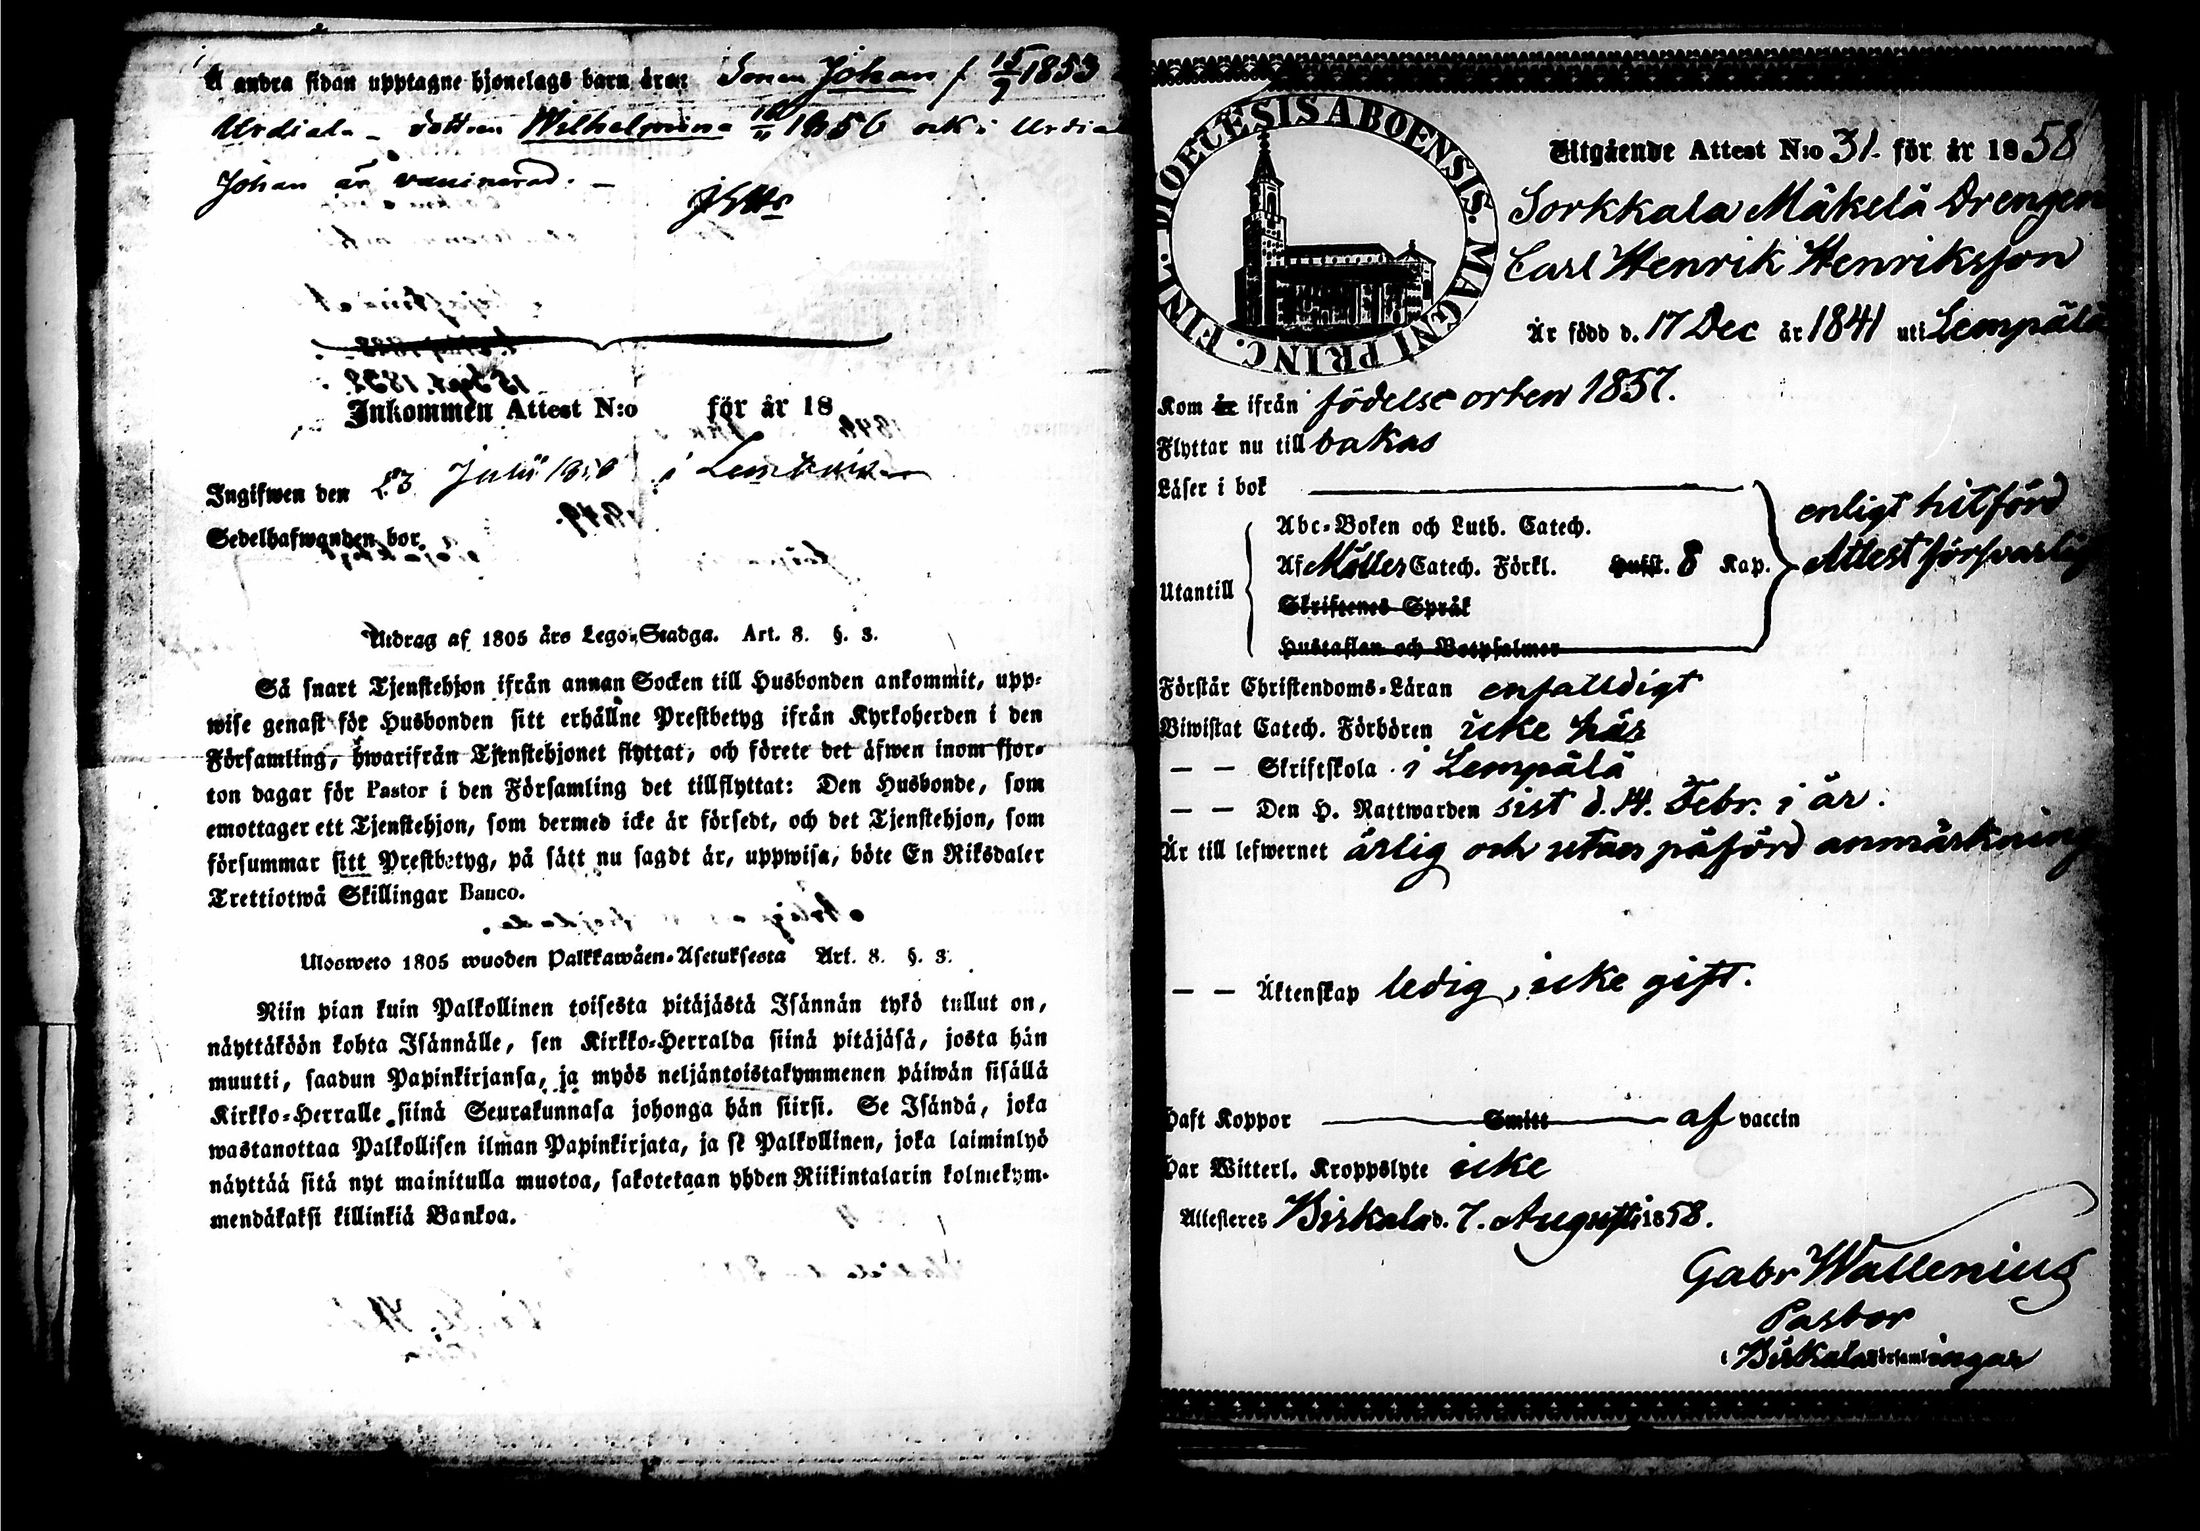 Å andra sidan upptagne hjonelags barn äro: Sonen Johan f. 15/7 1853
Urdiala – dottren Wilhelmina 1856 ock i Urdiala
Johan är vaccinerad. –
Inkommen Attest N:o för år 18
Ingifwen den 23 Julii i
Sedelhafwanden bor
Utdrag af 1805 års Lego-Stadga. Art. 8. §. 3.
Så snart Tjenstehjon ifrån annan Socken till Husbonden ankommit, upp-
wise genast för Husbonden sitt erhållne Prestbetyg ifrån Kyrkoherden i den
Församling, hwarifrån Tjenstehjonet flyttat, och förete det äfwen inom fjor-
ton dagar för Pastor i den Församling det tillflyttat: Den Husbonde, som
emottager ett Tjenstehjon, som dermed icke är försedt, och det Tjenstehjon, som
försummar sitt Prestbetyg, på sätt nu sagdt är, uppwisa, böte En Riksdaler
Trettiotwå Skillingar Banco.
Ulosweto 1805 wuoden Palkkawäen-Asetuksesta Art. 8. §. 3.
Niin pian kuin Palkollinen toisesta pitäjästä Isännän tykö tullut on,
näyttäköön kohta Isännälle, sen Kirkko-Herralda siinä pitäjäsä, josta hän
muutti, saadun Papinkirjansa, ja myös neljäntoistakymmenen päiwän sisällä
Kirkko-Herralle siinä Seurakunnasa johonga hän siirsi. Se Isändä, joka
wastanottaa Palkollisen ilman Papinkirjata, ja se Palkollinen, joka laiminlyö
näyttää sitä nyt mainitulla muotoa, sakotetaan yhden Riikintalarin kolmekym-
mendäkaksi killinkiä Bankoa.
DIOECESIS ABOENSIS. MAGNI PRINC. FINL.
Utgående Attest N:o 31. för år 1858
Sorkkala Mäkelä Drengen
Carl Henrik Henriksson
Är född d. 17 Dec år 1841 uti Lempälä
Kom år ifrån födelse orten 1857.
Flyttar nu till bakas
Läser i bok
enligt hitförd
Attest försvarlig
Utantill
Abc-Boken och Luth. Catech.
Af Möllers Catech. Förkl. Hufst. 8 Kap.
Skriftenes Språk
Hustaflan och Botpsalmer
Förstår Christendoms-Läran enfalldigt
Biwistat Catech. Förhören icke här
— — Skriftskola i Lempälä
— — Den H. Nattwarden sist d. 14. Febr. i år.
Är till lefwernet ärlig och utan påförd anmärkning
— — Äktenskap ledig, icke gift.
Haft Koppor Smitt af vaccin
Har Witterl. Kroppslyte icke
Attesteres Birkala d. 7. Augusti 1858.
Gabr Wallenius
Pastor
i Birkala Församlingar